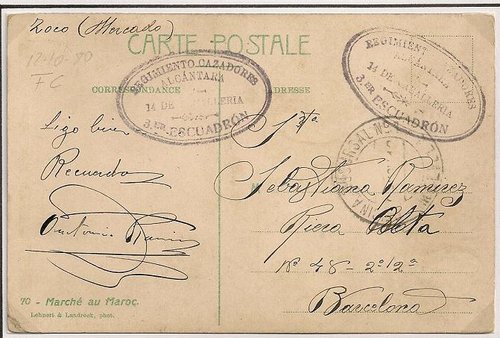 Zoco (Mercado)
CARTE POSTALE
CORRESPONDANCE
ADRESSE
REGIMIENTO CAZADORES
ALCÁNTARA
14 DE CABALLERIA
3.ER ESCUADRÓN
REGIMIENT CAZADORES
14 DE CABALLERIA
3.ER ESCUADRÓN
Sigo bien
Recuerdos
Antonio Ramirez
Srta
Sebastiana Ramirez
Riera Alta
Nº 48 - 2º 2ª
Barcelona
70 - Marché au Maroc.
Lehnert & Landrock, phot.